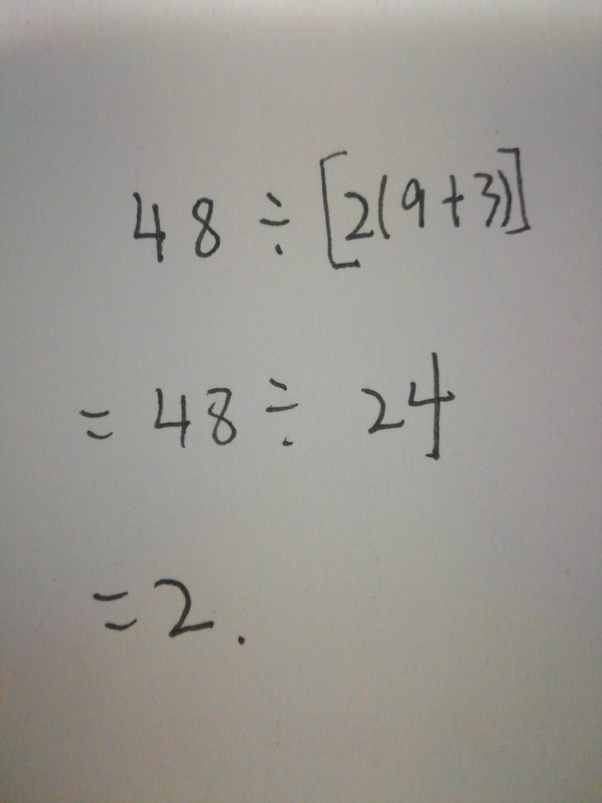 48 ÷ [2(9+3)]
= 48 ÷ 24
= 2.